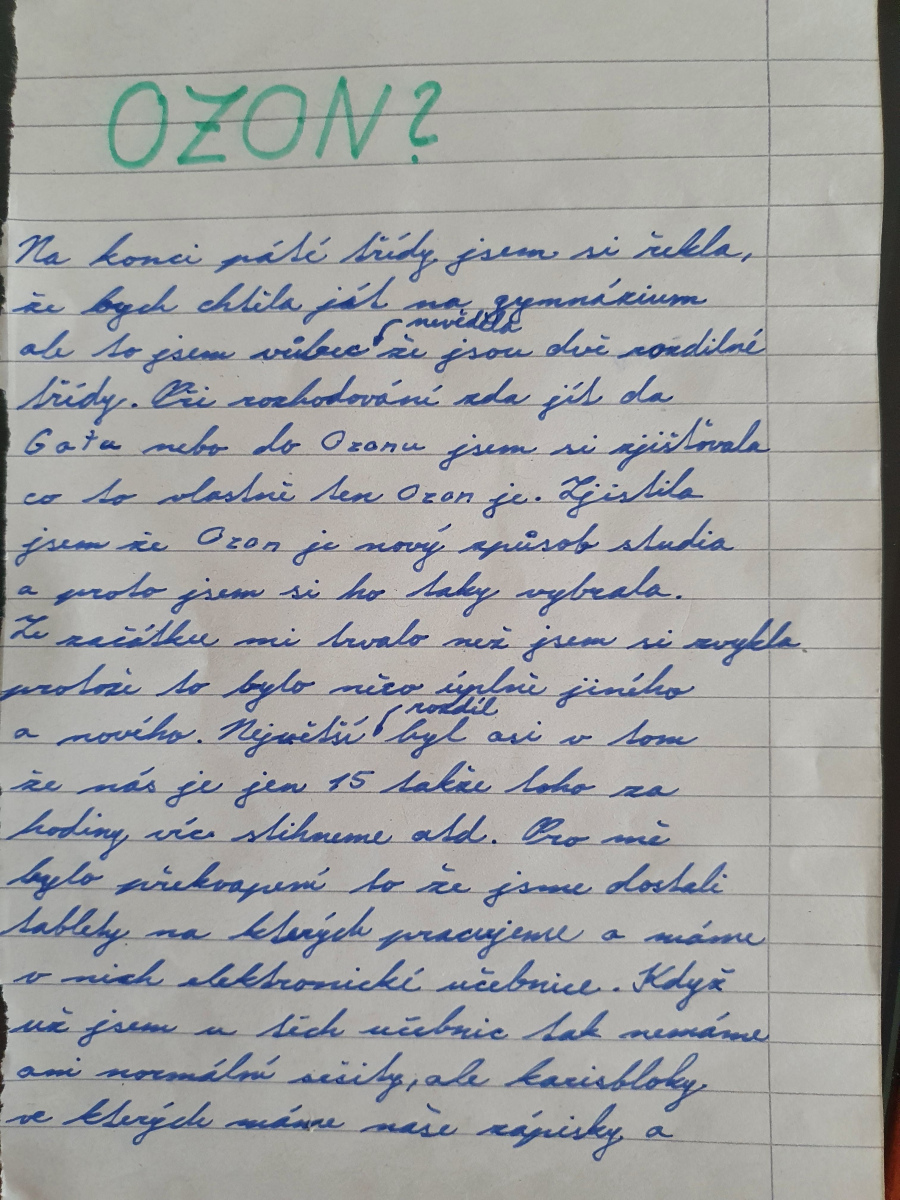 OZON?
Na konci páté třídy jsem si řekla,
že bych chtěla ját na gymnázium
nevěděla
ale to jsem vůbec že jsou dvě rozdilné
třídy. Při rozhodování zda jít da
Gaťu nebo do Ozonu jsem si zjišťovala
co to vlastně ten Ozon je. Zjistila
jsem že Ozon je nový způsob studia
a proto jsem si ho taky vybrala.
Ze začátku mi trvalo než jsem si zvykla
protože to bylo něco úplně jiného
rozdíl
a nového. Největší byl asi v tom
že nás je jen 15 takže toho za
hodiny víc stihneme atd. Pro mě
bylo překvapení to že jsme dostali
tablety na kterých pracujeme a máme
v nich elektronické učebnice. Když
už jsem u těch učebnic tak nemáme
ani normální sešity, ale karisbloky
ve kterých máme naše zápisky a